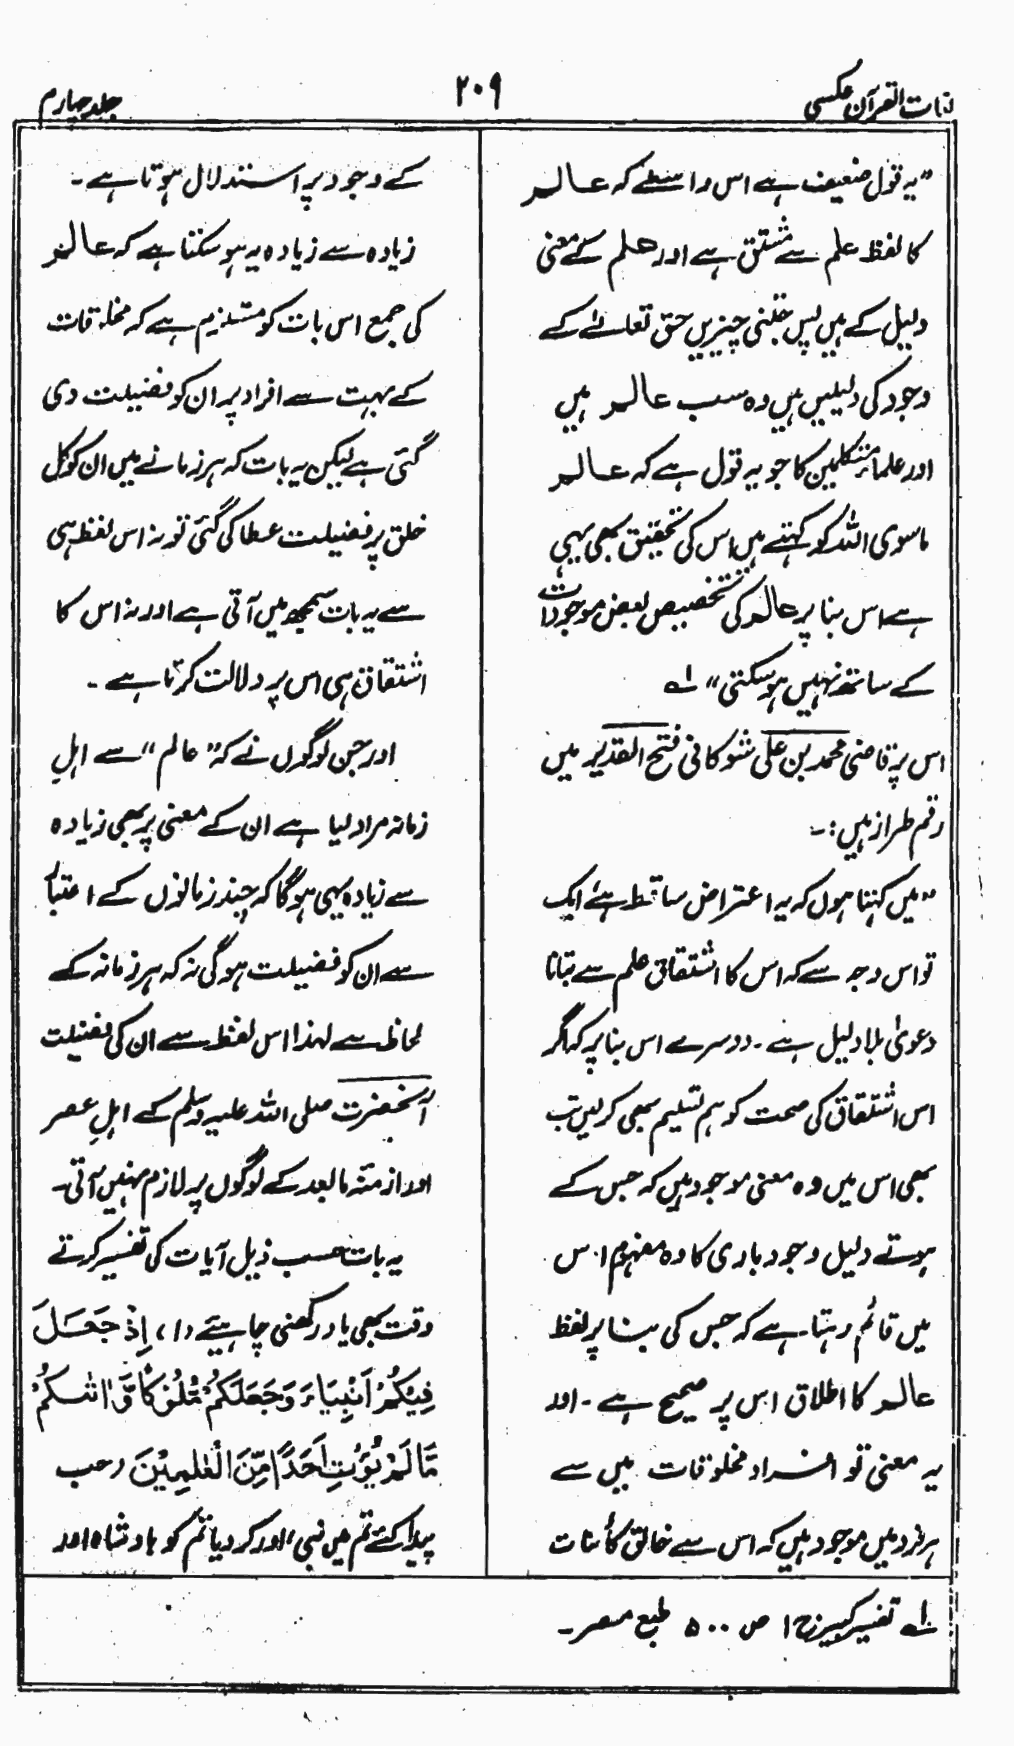 لغات القرآن عکسی
۲۰۹
جلد چہارم
”یہ قول ضعیف ہے اس واسطے کہ عالم
کا لفظ علم سے مشتق ہے اور علم کے معنی
دلیل کے ہیں پس جتنی چیزیں حق تعالےٰ کے
وجود کی دلیلیں ہیں وہ سب عالم ہیں
اور علمائے متکلمین کا جو یہ قول ہے کہ عالم
ماسوی اللہ کو کہتے ہیں اس کی تحقیق بھی یہی
ہے اس بنا پر عالم کی تخصیص بعض موجودات
کے ساتھ نہیں ہو سکتی“ لہ
اس پر قاضی محمد بن علی شوکانی فتح القدیر میں
رقم طراز ہیں :۔
”میں کہتا ہوں کہ یہ اعتراض ساقط ہے ایک
تو اس وجہ سے کہ اس کا اشتقاق علم سے بتانا
دعویٰ بلا دلیل ہے ۔ دوسرے اس بنا پر کہ اگر
اس اشتقاق کی صحت کو ہم تسلیم بھی کرلیں تب
بھی اس میں وہ معنی موجود ہیں کہ جس کے
ہوتے دلیل وجود باری کا وہ مفہوم اس
میں قائم رہتا ہے کہ جس کی بنا پر لفظ
عالم کا اطلاق اس پر صحیح ہے ۔ اور
یہ معنی تو افراد مخلوقات میں سے
ہر فرد میں موجود ہیں کہ اس سے خالق کائنات
کے وجود پر استدلال ہوتا ہے ۔
زیادہ سے زیادہ یہ ہو سکتا ہے کہ عالم
کی جمع اس بات کو مستلزم ہے کہ مخلوقات
کے بہت سے افراد پر ان کو فضیلت دی
گئی ہے لیکن یہ بات کہ ہر زمانے میں ان کو کل
خلق پر فضیلت عطا کی گئی تو نہ اس لفظ ہی
سے یہ بات سمجھ میں آتی ہے اور نہ اس کا
اشتقاق ہی اس پر دلالت کرتا ہے ۔
اور جن لوگوں نے کہ ”عالم“ سے اہلِ
زمانہ مراد لیا ہے ان کے معنی پر بھی زیادہ
سے زیادہ یہی ہوگا کہ چند زمانوں کے اعتبار
سے ان کو فضیلت ہوگی نہ کہ ہر زمانہ کے
لحاظ سے لہذا اس لفظ سے ان کی فضیلت
آنحضرت صلی اللہ علیہ وسلم کے اہلِ عصر
اور ازمنہ مابعد کے لوگوں پر لازم نہیں آتی۔
یہ بات حسب ذیل آیات کی تفسیر کرتے
وقت بھی یاد رکھنی چاہیئے (۱) اِذْ جَعَلَ
فِیْکُمْ اَنْبِیَاءَ وَجَعَلَکُمْ مُّلُوْکًا وَّاٰتٰىکُمْ
مَّا لَمْ یُؤْتِ اَحَدًا مِّنَ الْعٰلَمِیْنَ (جب
پیدا کئے تم میں نبی، اور کر دیا تم کو بادشاہ اور
لہ تفسیر کبیر ج ۱ ص ۵۰۰ طبع مصر ۔